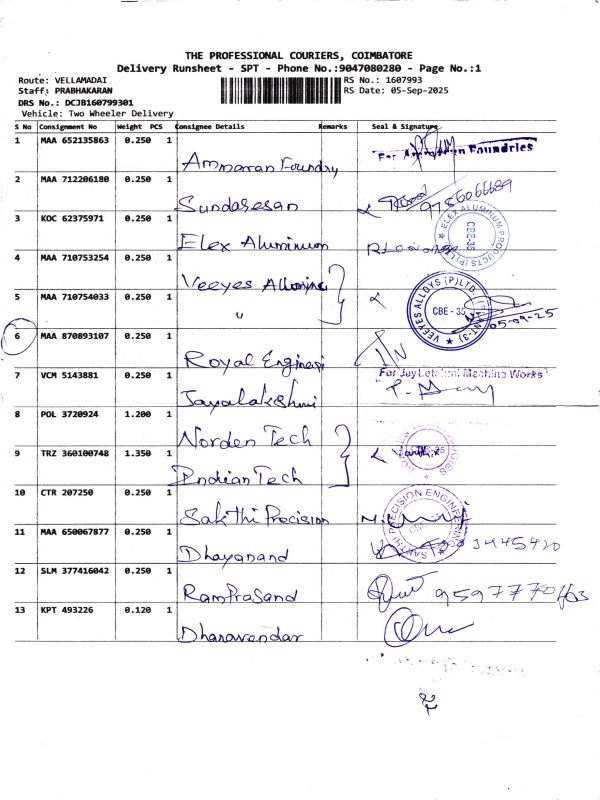 THE PROFESSIONAL COURIERS, COIMBATORE
Delivery Runsheet - SPT - Phone No.:9047080280 - Page No.:1
Route: VELLAMADAI RS No.: 1607993
Staff: PRABHAKARAN RS Date: 05-Sep-2025
DRS No.: DCJB160799301
Vehicle: Two Wheeler Delivery
S No Consignment No Weight PCS Consignee Details Remarks Seal & Signature
1 MAA 652135863 0.250 1 Ammaran Foundry For Foundries
2 MAA 712206180 0.250 1 Sundaresan
3 KOC 62375971 0.250 1 Elex Aluminium ELEX ALUMINUM PRODUCTS (P) LTD CBE-35
4 MAA 710753254 0.250 1 Veeyes
5 MAA 710754033 0.250 1 " VEEYES ALLOYS (P) LTD CBE - 35 05-09-25
6 MAA 870893107 0.250 1 Royal
7 VCM 5143881 0.250 1 Jayalakshmi Machine Works
8 POL 3720924 1.200 1 Norden Tech
9 TRZ 360100748 1.350 1 Indian Tech
10 CTR 207250 0.250 1 Sakthi Precision SAKTHI PRECISION ENGINEERING
11 MAA 650067877 0.250 1 Dhayanand
12 SLM 377416042 0.250 1 RamPrasand
13 KPT 493226 0.120 1 Dharavendar